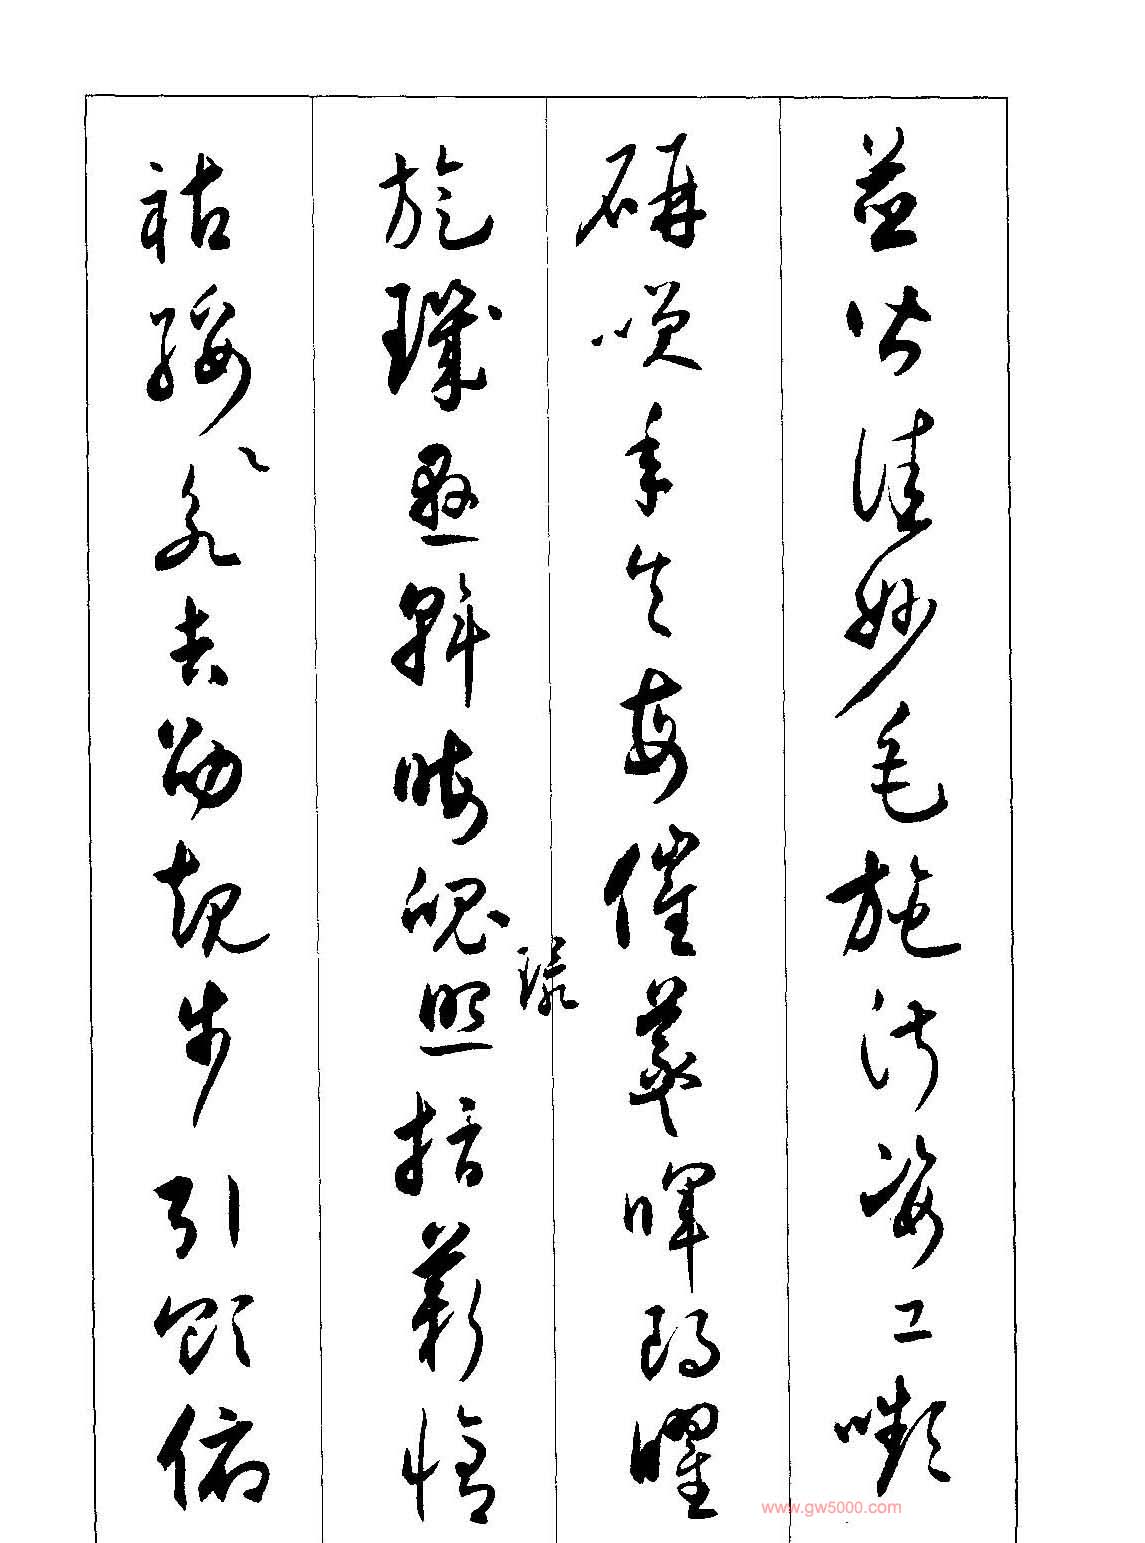 並皆佳妙毛施淑姿工嚬
研笑年矢每催羲暉朗曜
旋璣懸斡晦魄照指薪脩
祜綏永吉劭矩步引領俯
璇
www.gw5000.com